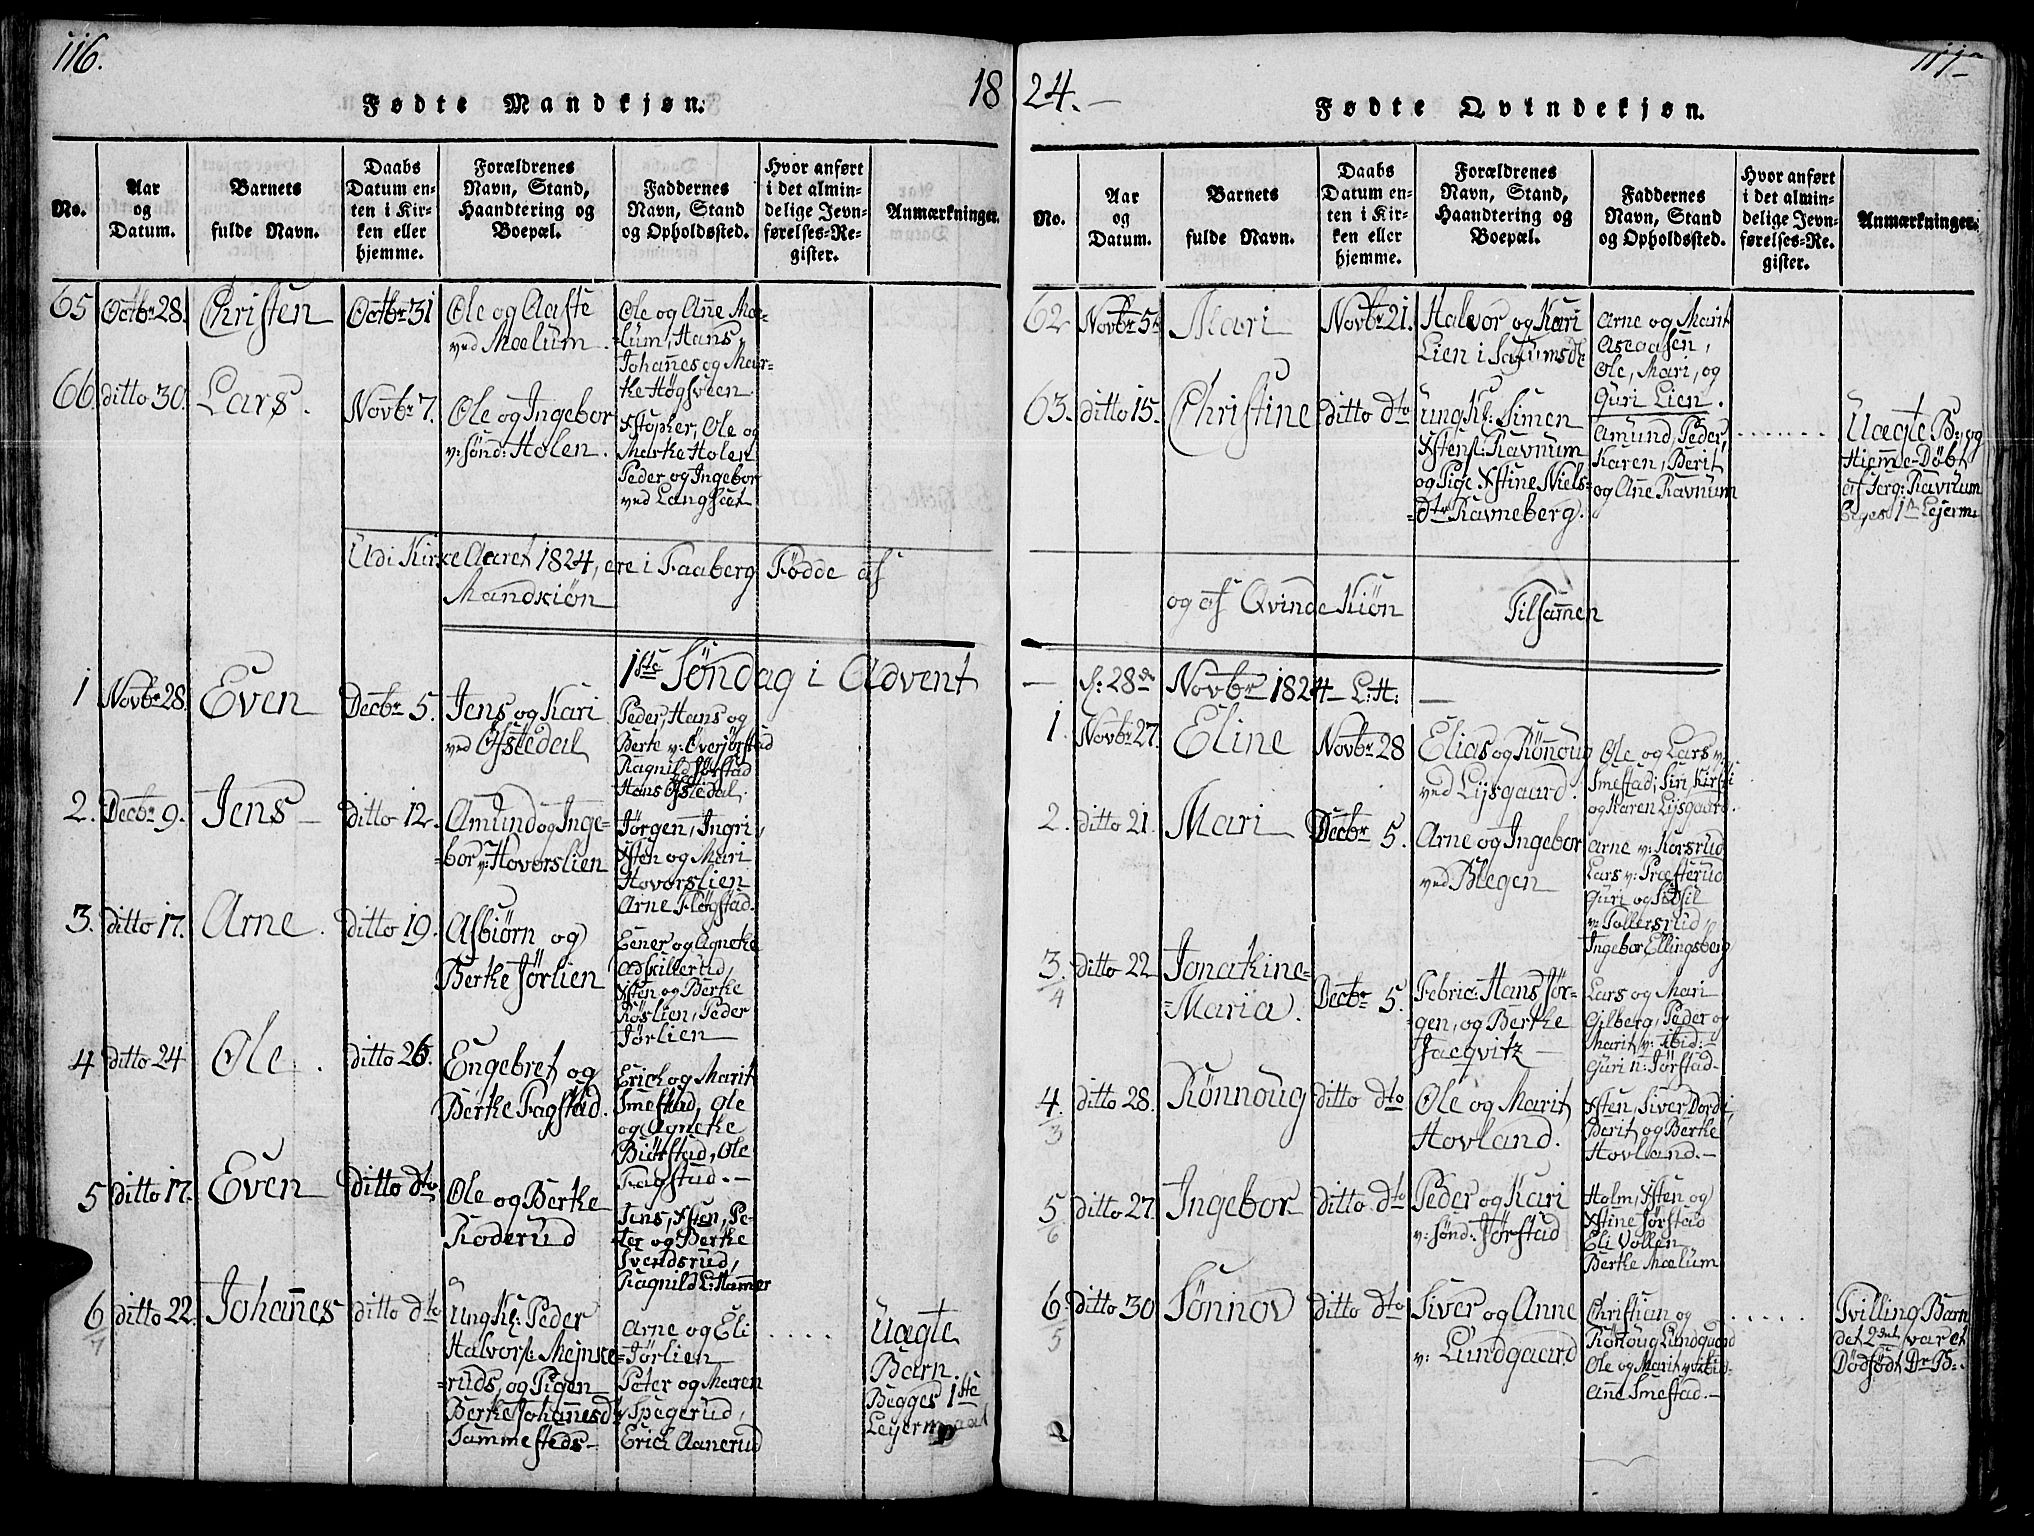 116.
Fødte Mandkjøn.
18
No.
Aar
og
Datum.
Barnets
fulde Navn.
Daabs
Datum en-
ten i Kir-
ken eller
hjemme.
Forældrenes
Navn, Stand,
Haandtering og
Boepæl.
Faddernes
Navn, Stand
og Opholdssted.
Hvor anført
i det almin-
delige Jevn-
førelses-Re-
gister.
Anmærkninger.
65
Octbr 28.
Christen
Octbr 31
Ole og Aaste
ved Mælum.
Ole og Añe Mæ-
lum, Hans,
Johañes og Mar-
Høgsveen.
66.
ditto 30.
Lars.
Novbr 7.
Ole og Ingebor
v: sønd: Holen.
Xstopher, Ole og
Holen
Peder og Ingebor
ved Langsæt
Udi Kirke Aaret 1824, ere i Faaberg Fødde af
Mandkiøn
1ste Søndag i Advent
1
Novbr 28.
Even
Decbr 5.
Jens og Kari
ved Ofstedal
Peder, Hans og
Berte v: Överjørstad
Ragnild Jørstad
Hans Ofstedal.
2.
Decbr 9.
Jens
ditto 12.
Amund og Inge-
bor v: Hovorslien
Jørgen, Ingri,
Xsten og Mari
Hovorslien
Arne Fløgstad.
3.
ditto 17.
Arne.
ditto 19.
Asbiørn og
Berte Jørlien
Eener og Agnete
Adskillerud,
Xsten og Berte
Røslien, Peder
Jørlien
4
ditto 24
Ole.
ditto 26.
Engebret og
Berte Fagstad.
Erich og Marit
Smestad, Ole
og Agnete
Biørstad, Ole
Fagstad.-
5
ditto 17.
Even
ditto dto
Ole og Berte
Roderud
Jens, Xsten, Pe-
ter og Berte
Svendsrud,
Ragnild L: Hamer
6
ditto 22.
Johañes
ditto dto
Ung Kl: Peder
Halvors:
ruds, og Pigen
Berte Johañesd
Arne og Eli
Jørlien
Peter og Maren
v Spegerud,
Erich Aanerud
Uægte
Barn.
Begges 1ste
Leyermaal
24.
Fødte Qvindekjøn.
No.
Aar
og
Datum.
Barnets
fulde Navn.
Daabs
Datum en-
ten i Kir-
ken eller
hjemme.
Forældrenes
Navn, Stand,
Haandtering og
Boepæl.
Faddernes
Navn, Stand
og Opholdssted.
Hvor anført
i det almin-
delige Jevn-
førelses-Re-
gister.
Anmærkninger.
62
Novbr 5.
Mari
Novbr 21.
Halvor og Kari
Lien i
Arne og Marit
Aseaasen,
Ole, Mari, og
Guri Lien.
63.
ditto 15.
Christine
ditto dto
Ung Kl: Simen
Xstens: Ravnum
og Pige Xstine Niels-
dtr Ravneberg.
Amund, Peder,
Karen, Berit
og Añe Ravnum
Uægte B:, og
Hiemme-Døbt
af Jerg: Ravnum
Leyerm:
og af Qvinde Kiøn
Tilsamen
28de Novbr 1824 - L:H.
1.
Novbr 27.
Eline
Novbr 28
Elias og Rönoug
ved Lysgaard.
Ole og Lars v:
Smestad, Siri, Kirsti
og Karen Lysgaard.
2.
ditto 21.
Mari
Decbr 5.
Arne og Ingebor
ved Blegen
Arne v: Korsrud
Lars v: Præsterud
Guri og Sidsil
v: Tollersrud,
Ingebor Ellingsberg
3.
4
ditto 22
Jonakine-
=Maria.
Decbr 5.
Febric: Hans Jør-
gen, og Berte
Jacqvitz
Lars og Mari
Gilberg, Peder og
Marit v: ibid:-
Guri n: Jørstad-
4.
3
ditto 28.
Rönnoug
ditto dto
Ole og Marit
Hovland.
Xsten, Siver, Dordi,
Berit og Berte
Hovland.-
5
6
ditto 27.
Ingebor
ditto dto
Peder og Kari
v: sønd: Jørstad
Holm, Xsten og
Xstine Jørstad
Eli Vollen
Berte Mælum
6.
5
ditto 30
Sönnov
ditto dto
Siver og Anne
v: Lundgaard
Christian og
Rönoug Lundgaard
Ole og Marit v: ibid:
Añe Smestad.-
Tvilling Barn
det 2det, var et
Dødfødt Dr B:.